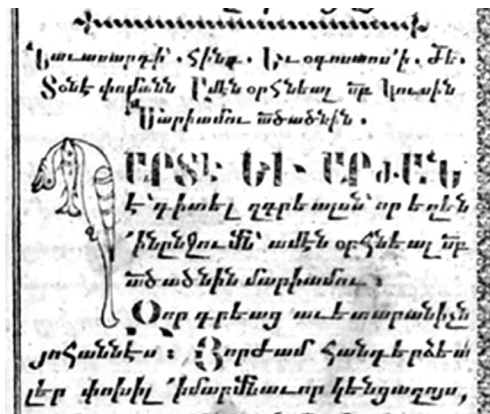 Նաւասարդի՝. հինգ. Եւ օգոստոս՛ի. ԺԵ.
Տօնէ փոխմանն Ամէն օրհնեալ սր Կուսին
Մարիամու ածածնին.
ՊԱՐՏԷ ԵՒ ԱՐԺԱՆ
է՝ գիտել զգրեալսն՝ որ եղեն
՛ի ննջումն՝ ամէն օրհնեալ սր
ածածնին մարիամու։
Զոր գրեաց աւետարանիչն
յոհաննէս։ Յորժամ հանդերձեա
լէր փոխիլ ՛ի մարմնաւոր կենցաղոյս,